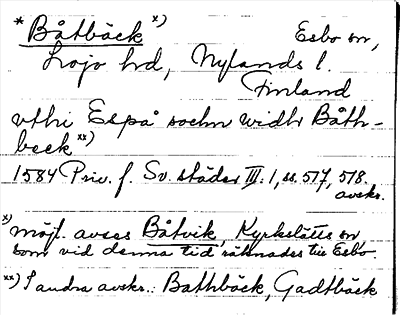 * Båtbäck x) Esbo sn,
Lojo hd, Nylands l.
Finland
vthi Espå sochn widh Båth-
beck xx)
1584 Priv. f. Sv. städer III:1, ss. 517, 518.
avskr.
x) möjl. avses Båtvik, Kyrkslätts sn
som vid denna tid räknades till Esbo.
xx) I andra avskr.: Bathbäck, Gadtbäck